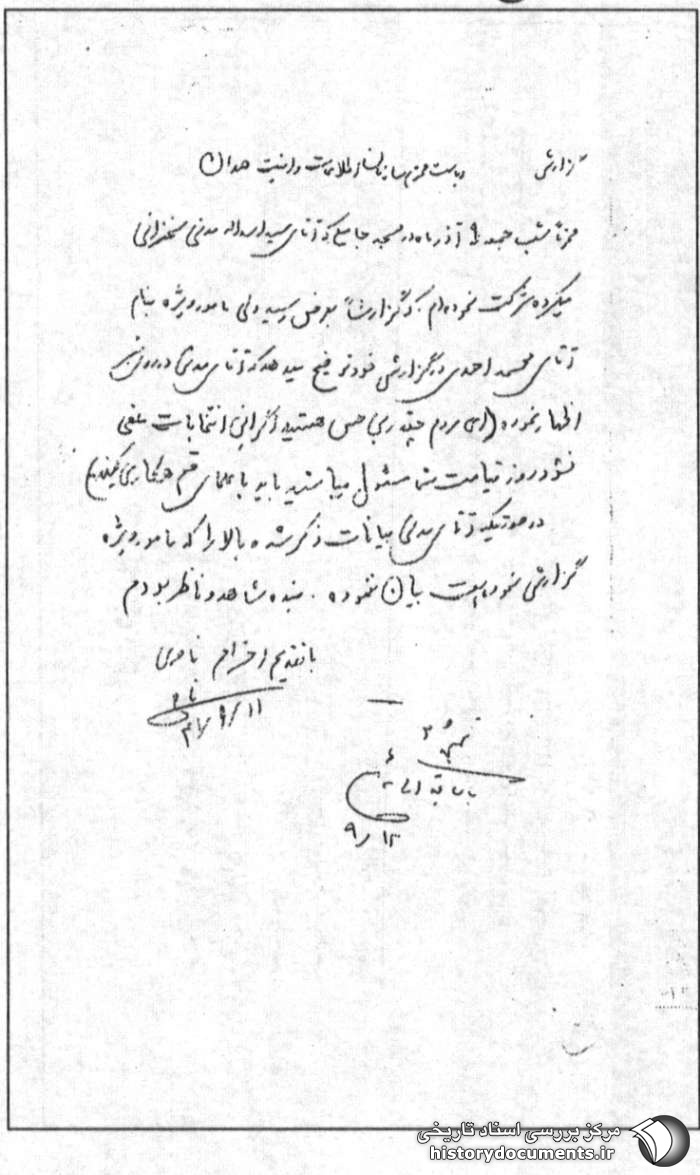 گزارش ریاست محترم سازمان اطلاعات و امنیت همدان
محترماً شب جمعه ۹ آذر ماه در مسجد جامع که آقای سید اسداله مدنی سخنرانی
میکرده شرکت نموده‌ام که گزارشاً بعرض رسید ولی مامور ویژه بنام
آقای محمد احمدی در گزارش خود توضیح میدهد که آقای مدنی در
اظهار نموده (ای مردم چقدر بی حس هستید اگر این انتخابات ملغی
نشود روز قیامت شما مسئول میباشید باید با علمای قم همکاری کنید)
در صورتیکه آقای مدنی بیانات ذکر شده بالا را که مامور ویژه
گزارش نموده است بیان ننموده. بنده شاهد و ناظر بودم
با تقدیم احترام نادری
۱۱/۹/
۱۲/۹
مرکز بررسی اسناد تاریخی
historydocuments.ir